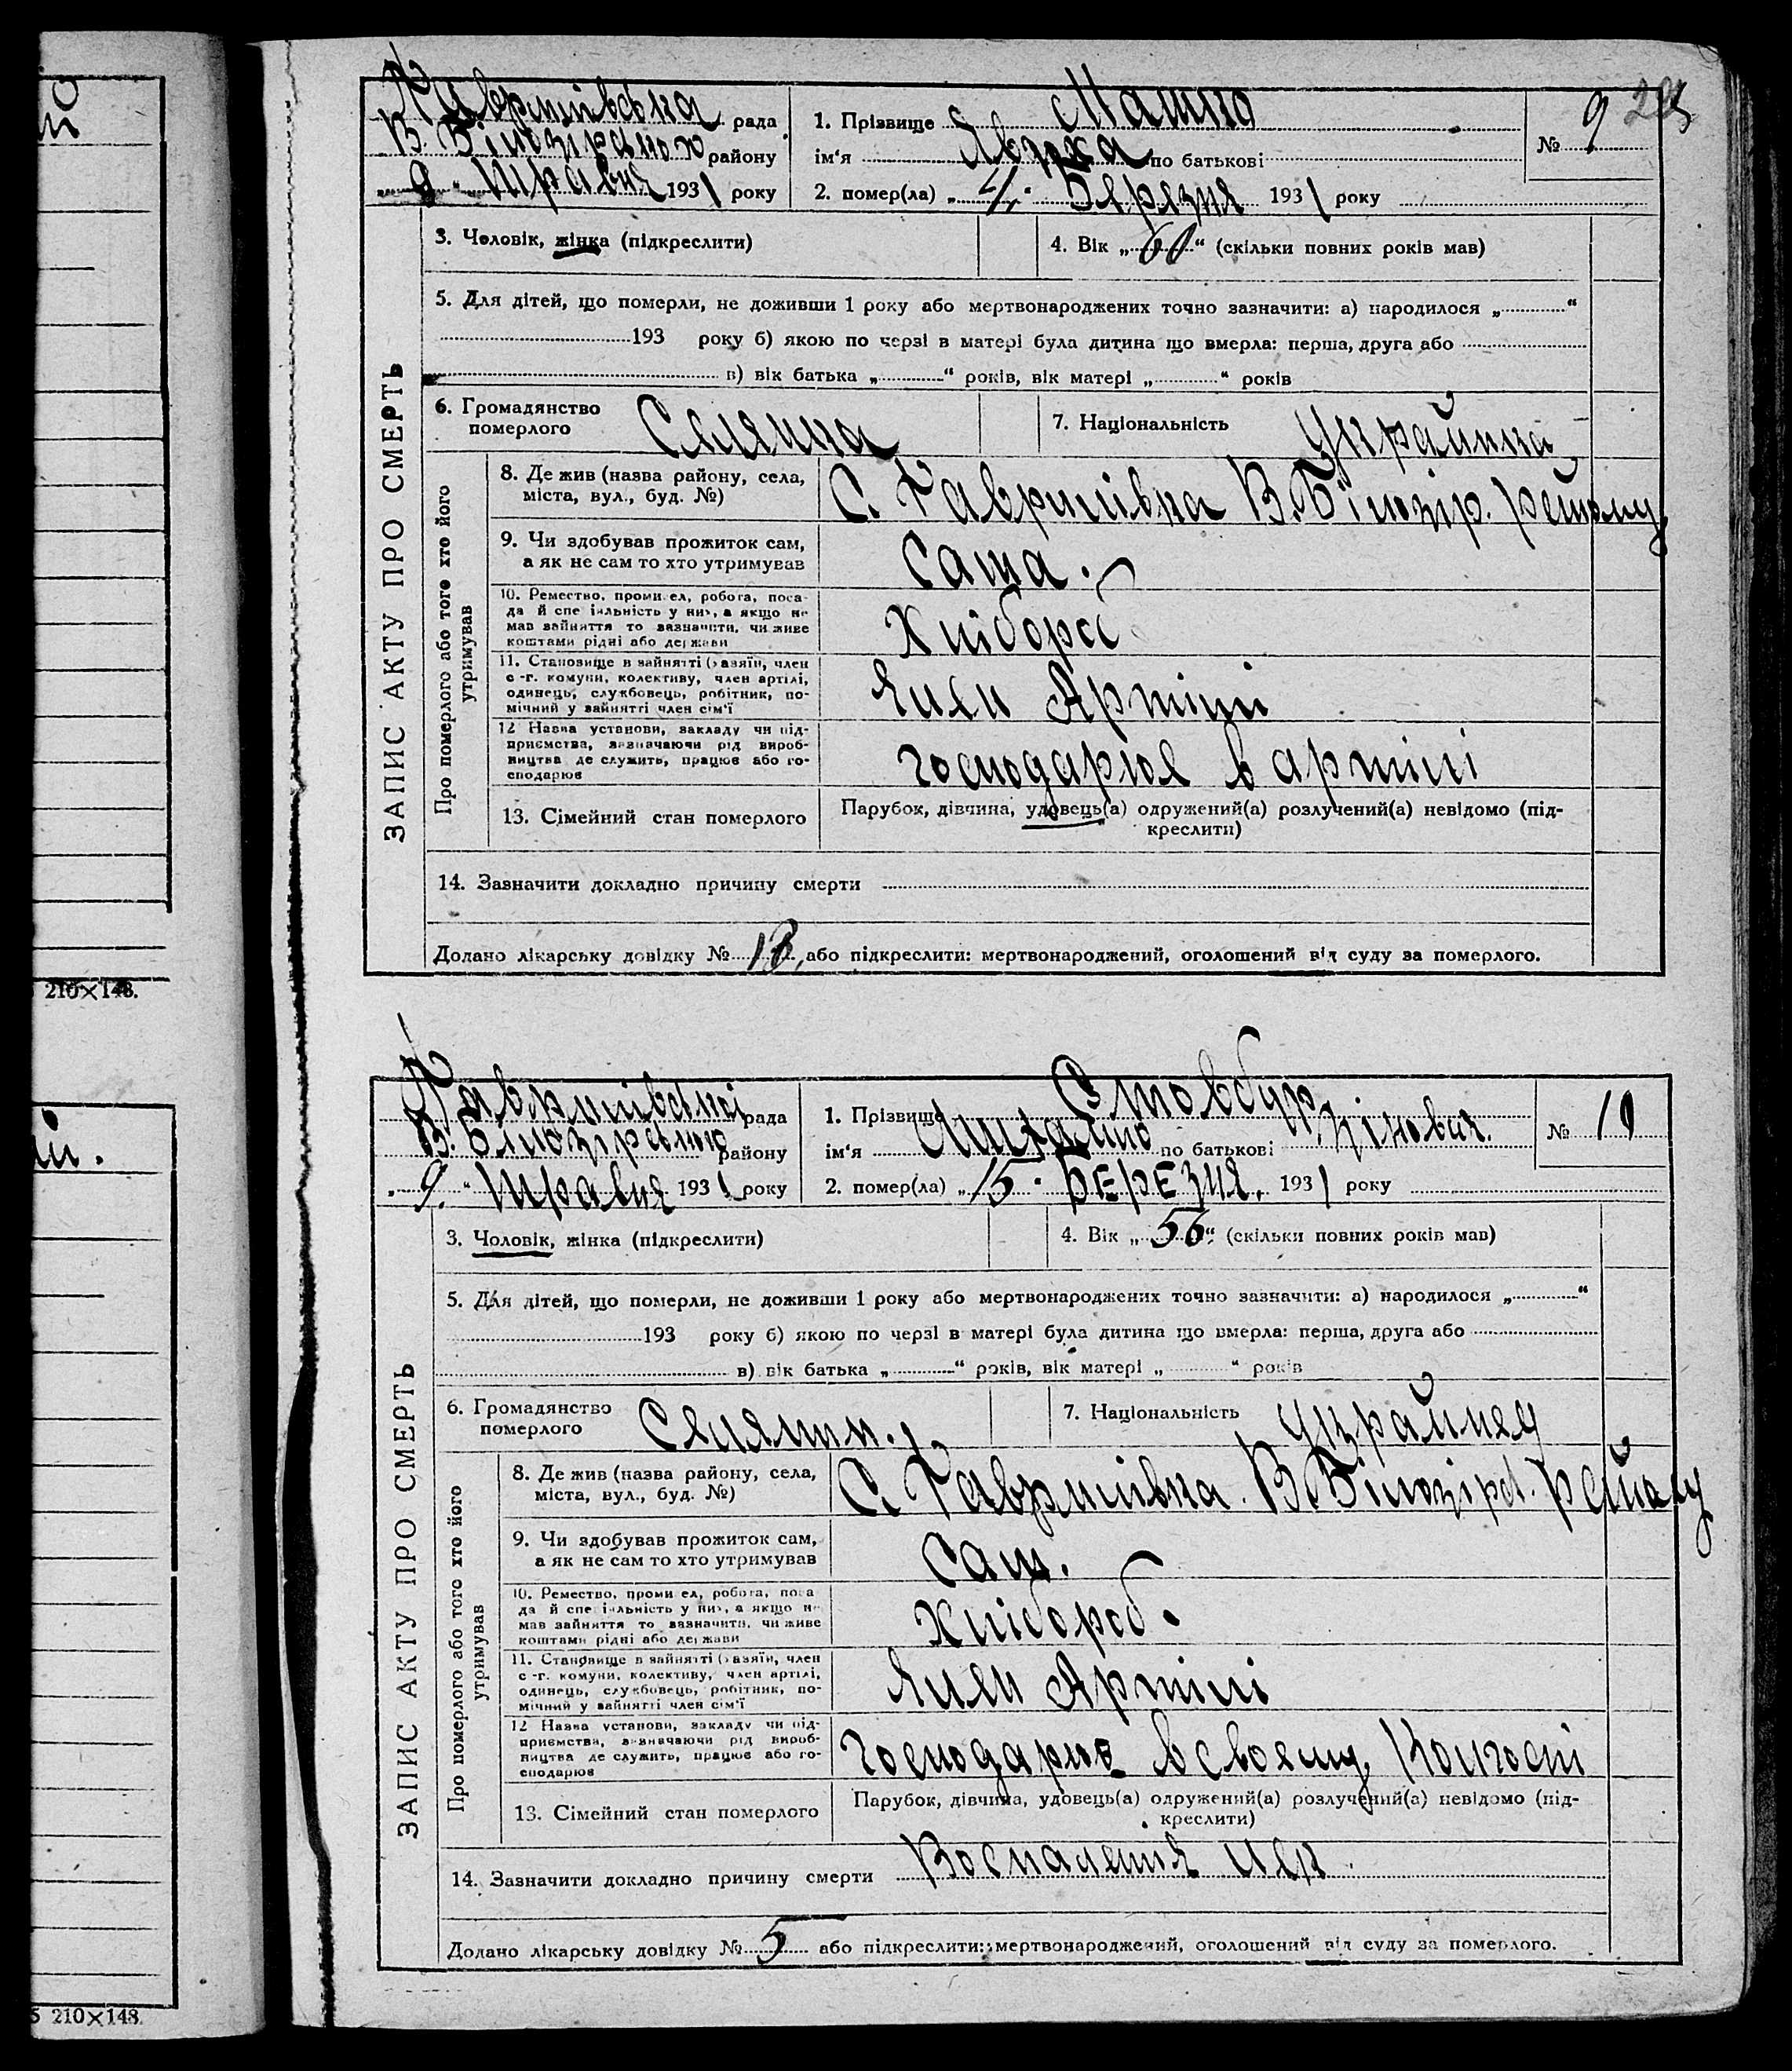 Гаврилівська рада
В. Білозірського району
„ 9 “ травня 1931 року
1. Прізвище Машко
ім‘я Явдоха по батькові
2. помер(ла) „ 4. Березня 1931 року
№ 9
3. Чоловік, жінка (підкреслити)
4. Вік „ 60 “ (скільки повних років мав)
5. Для дітей, що померли, не доживши 1 року або мертвонароджених точно зазначити: а) народилося „ “
193 року б) якою по черзі в матері була дитина що вмерла: перша, друга або
в) вік батька „ “ років, вік матері „ “ років
6. Громадянство померлого Селянка
7. Національність Українка
ЗАПИС АКТУ ПРО СМЕРТЬ
Про померлого або того хто його утримував
8. Де жив (назва району, села,
міста, вул., буд. №)
С. Гаврилівка В. Білозір. району
9. Чи здобував прожиток сам,
а як не сам то хто утримував
Сама.
10. Ремество, промисел, робота, поса-
да й спеціяльність у них, а якщо не
мав зайняття то зазначити, чи живе
коштами рідні або держави
Хлібороб
11. Становище в зайнятті (хазяїн, член
с-г. комуни, колективу, член артілі,
одинець, службовець, робітник, по-
мічний у зайнятті член сім'ї
Член Артілі
12 Назва установи, закладу чи під-
приємства, зазначаючи рід вироб-
ництва де служить, працює або го-
сподарює
господарює в артілі
13. Сімейний стан померлого
Парубок, дівчина, удовець(а) одружений(а) розлучений(а) невідомо (під-
креслити)
14. Зазначити докладно причину смерти
Додано лікарську довідку № 18, або підкреслити: мертвонароджений, оголошений від суду за померлого.
210×148.
Гаврилівської рада
В. Білозірського району
„ 9. “ травня 1931 року
1. Прізвище Стовбур
ім‘я по батькові
2. помер(ла) „ 15 . березня. 1931 року
№ 10
3. Чоловік, жінка (підкреслити)
4. Вік „ 56 “ (скільки повних років мав)
5. Для дітей, що померли, не доживши 1 року або мертвонароджених точно зазначити: а) народилося „ “
193 року б) якою по черзі в матері була дитина що вмерла: перша, друга або
в) вік батька „ “ років, вік матері „ “ років
6. Громадянство померлого Селянин.
7. Національність Українец
ЗАПИС АКТУ ПРО СМЕРТЬ
Про померлого або того хто його утримував
8. Де жив (назва району, села,
міста, вул., буд. №)
С. Гаврилівка. В. Білозірс. району
9. Чи здобував прожиток сам,
а як не сам то хто утримував
Сам.
10. Ремество, промисел, робота, поса-
да й спеціяльність у них, а якщо не
мав зайняття то зазначити, чи живе
коштами рідні або держави
Хлібороб.
11. Становище в зайнятті (хазяїн, член
с-г. комуни, колективу, член артілі,
одинець, службовець, робітник, по-
мічний у зайнятті член сім'ї
Член Артілі
12 Назва установи, закладу чи під-
приємства, зазначаючи рід вироб-
ництва де служить, працює або го-
сподарює
господарює в своєму Колгоспі
13. Сімейний стан померлого
Парубок, дівчина, удовець(а) одружений(а) розлучений(а) невідомо (під-
креслити)
14. Зазначити докладно причину смерти Воспаленія
Додано лікарську довідку № 5 або підкреслити: мертвонароджений, оголошений від суду за померлого.
5 210×148.